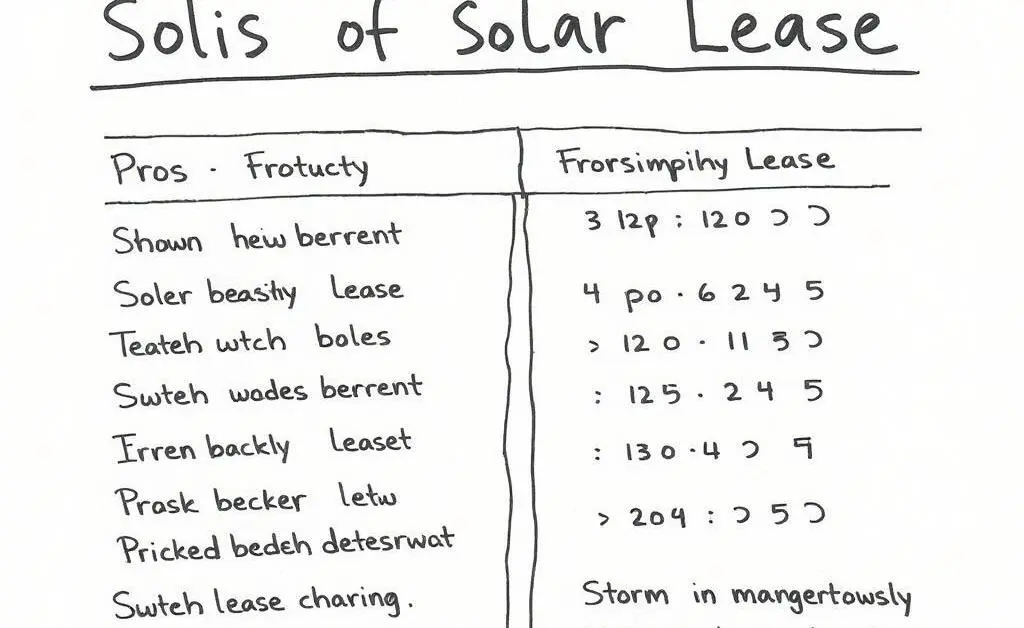 Solis of Solar Lease
Pros · Frotucty
Frorsimpihy Lease
Shown heiw berrent
3 12p : 120
Soler beashy Lease
4 po · 6 2 4 5
Teateh wtch boles
> 12 0 · 11 5
Swteh wades berrent
: 125 · 2 4 5
Irren backly leaset
: 130 · 4
Prask becker letw
> 204 : 5
Pricked bedeh detesrwat
Swteh lease charing.
Storm in mangertowsly